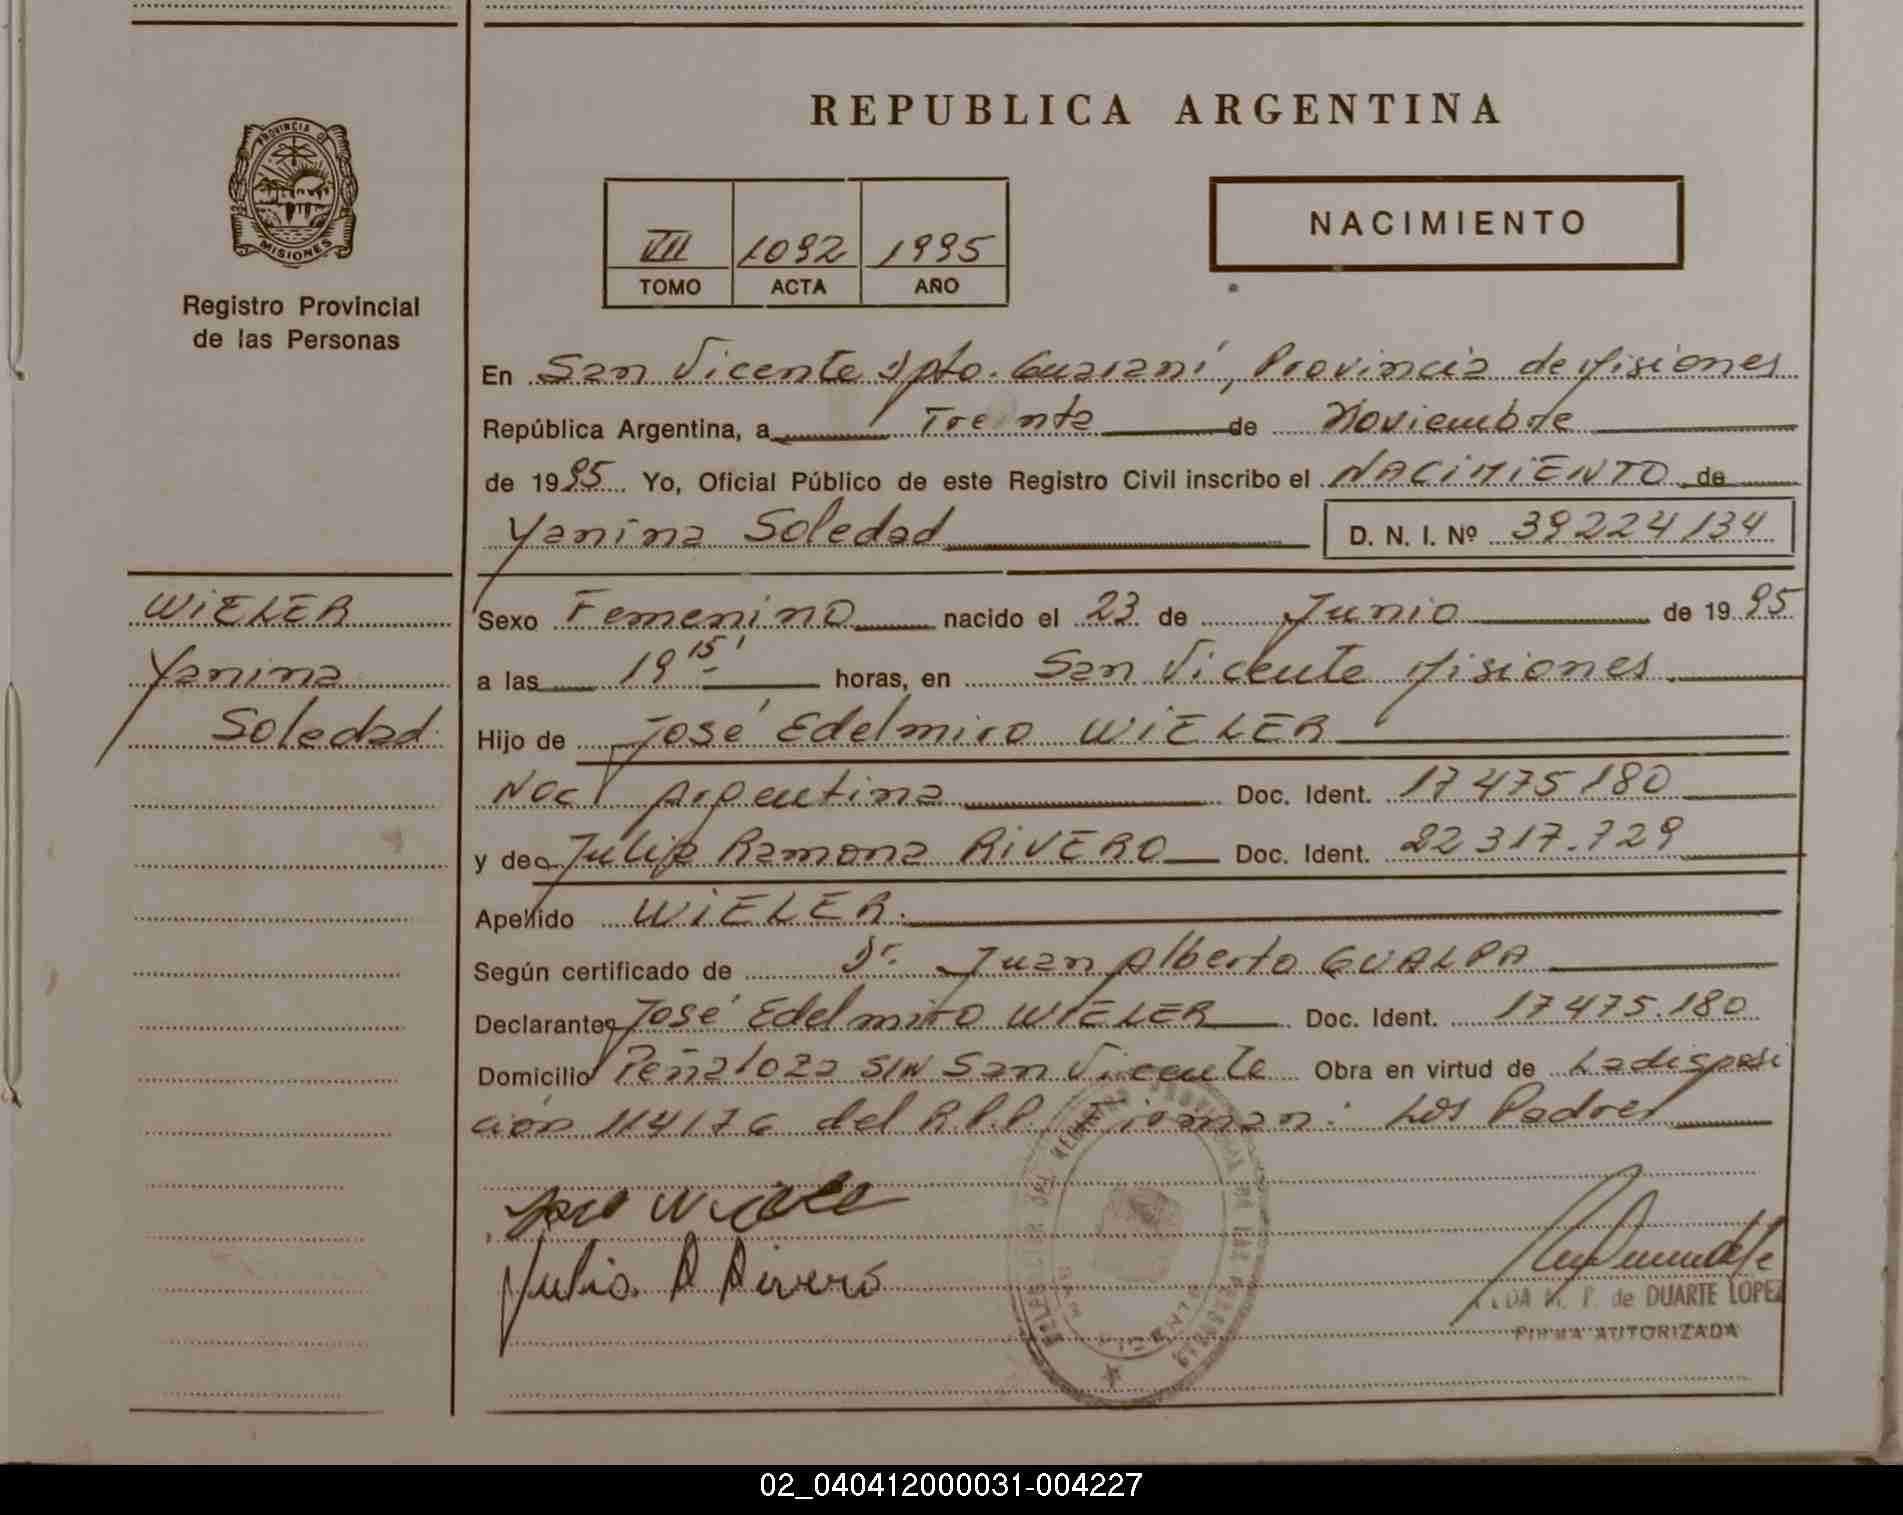 REPUBLICA ARGENTINA
PROVINCIA DE
MISIONES
Registro Provincial
de las Personas
VII 1092 1995
TOMO ACTA AÑO
NACIMIENTO
En San Vicente Dpto. Guaraní, Provincia de Misiones
República Argentina, a Treinta de Noviembre
de 1995 Yo, Oficial Público de este Registro Civil inscribo el NACIMIENTO de
Yanina Soledad D. N. I. Nº 39224134
WIELER
Yanina
Soledad
Sexo Femenino nacido el 23 de Junio de 1995
a las 19 15' horas, en San Vicente Misiones.
Hijo de José Edelmiro WIELER
Nac Argentina Doc. Ident. 17475180
y de Julia Ramona RIVERO Doc. Ident. 22317.729
Apellido WIELER.
Según certificado de Dr. Juan Alberto GUALPA
Declarante José Edelmiro WIELER Doc. Ident. 17475.180
Domicilio Peñaloza S/N San Vicente Obra en virtud de La disposi
ción 114/76 del R.P.P. Firman: Los Padres
José Wieler
Julia R Rivero
M. P. de DUARTE LOPEZ
FIRMA AUTORIZADA
02_040412000031-004227